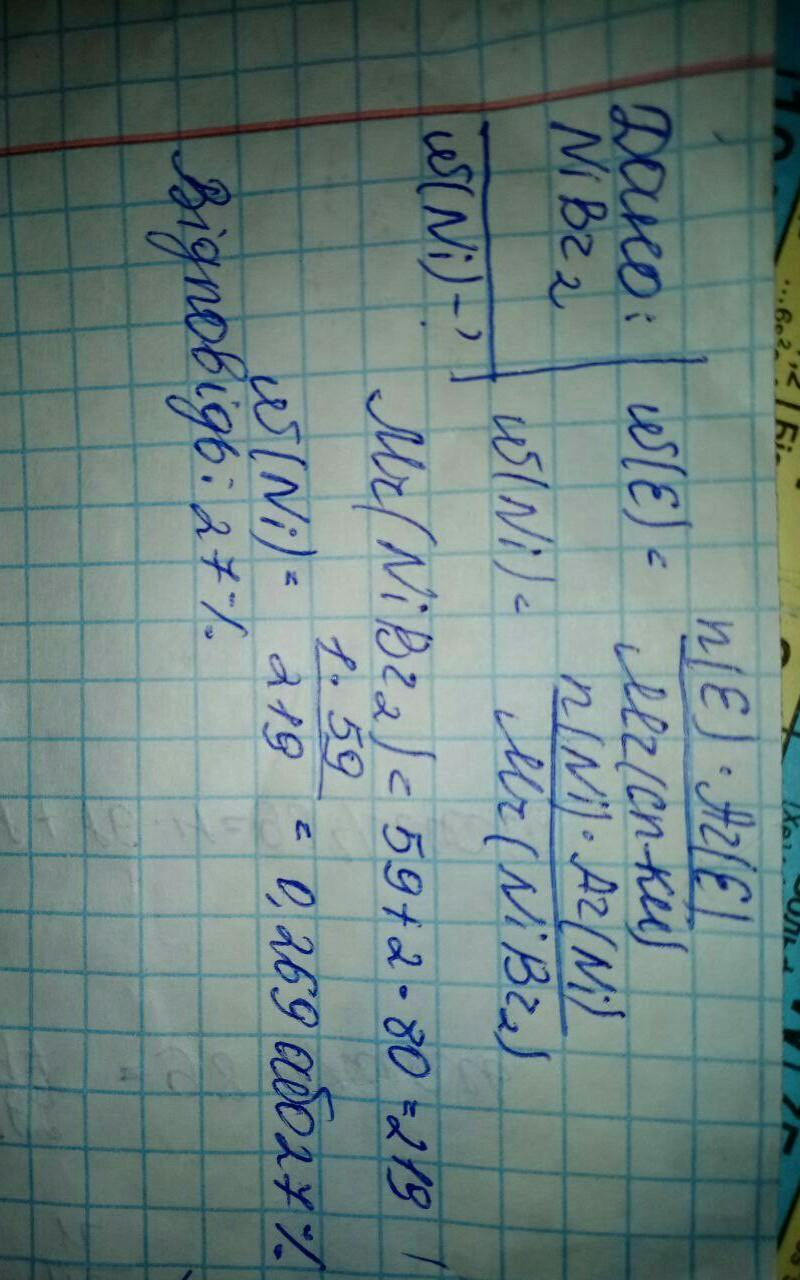 Дано:
NiBr2
w(Ni)-?
w(E) = n(E)·Ar(E) / Mr(сп-ки)
w(Ni) = n(Ni)·Ar(Ni) / Mr(NiBr2)
Mr(NiBr2) = 59+2·80=219
w(Ni) = 1·59 / 219 = 0,269 або 27%
Відповідь: 27%.